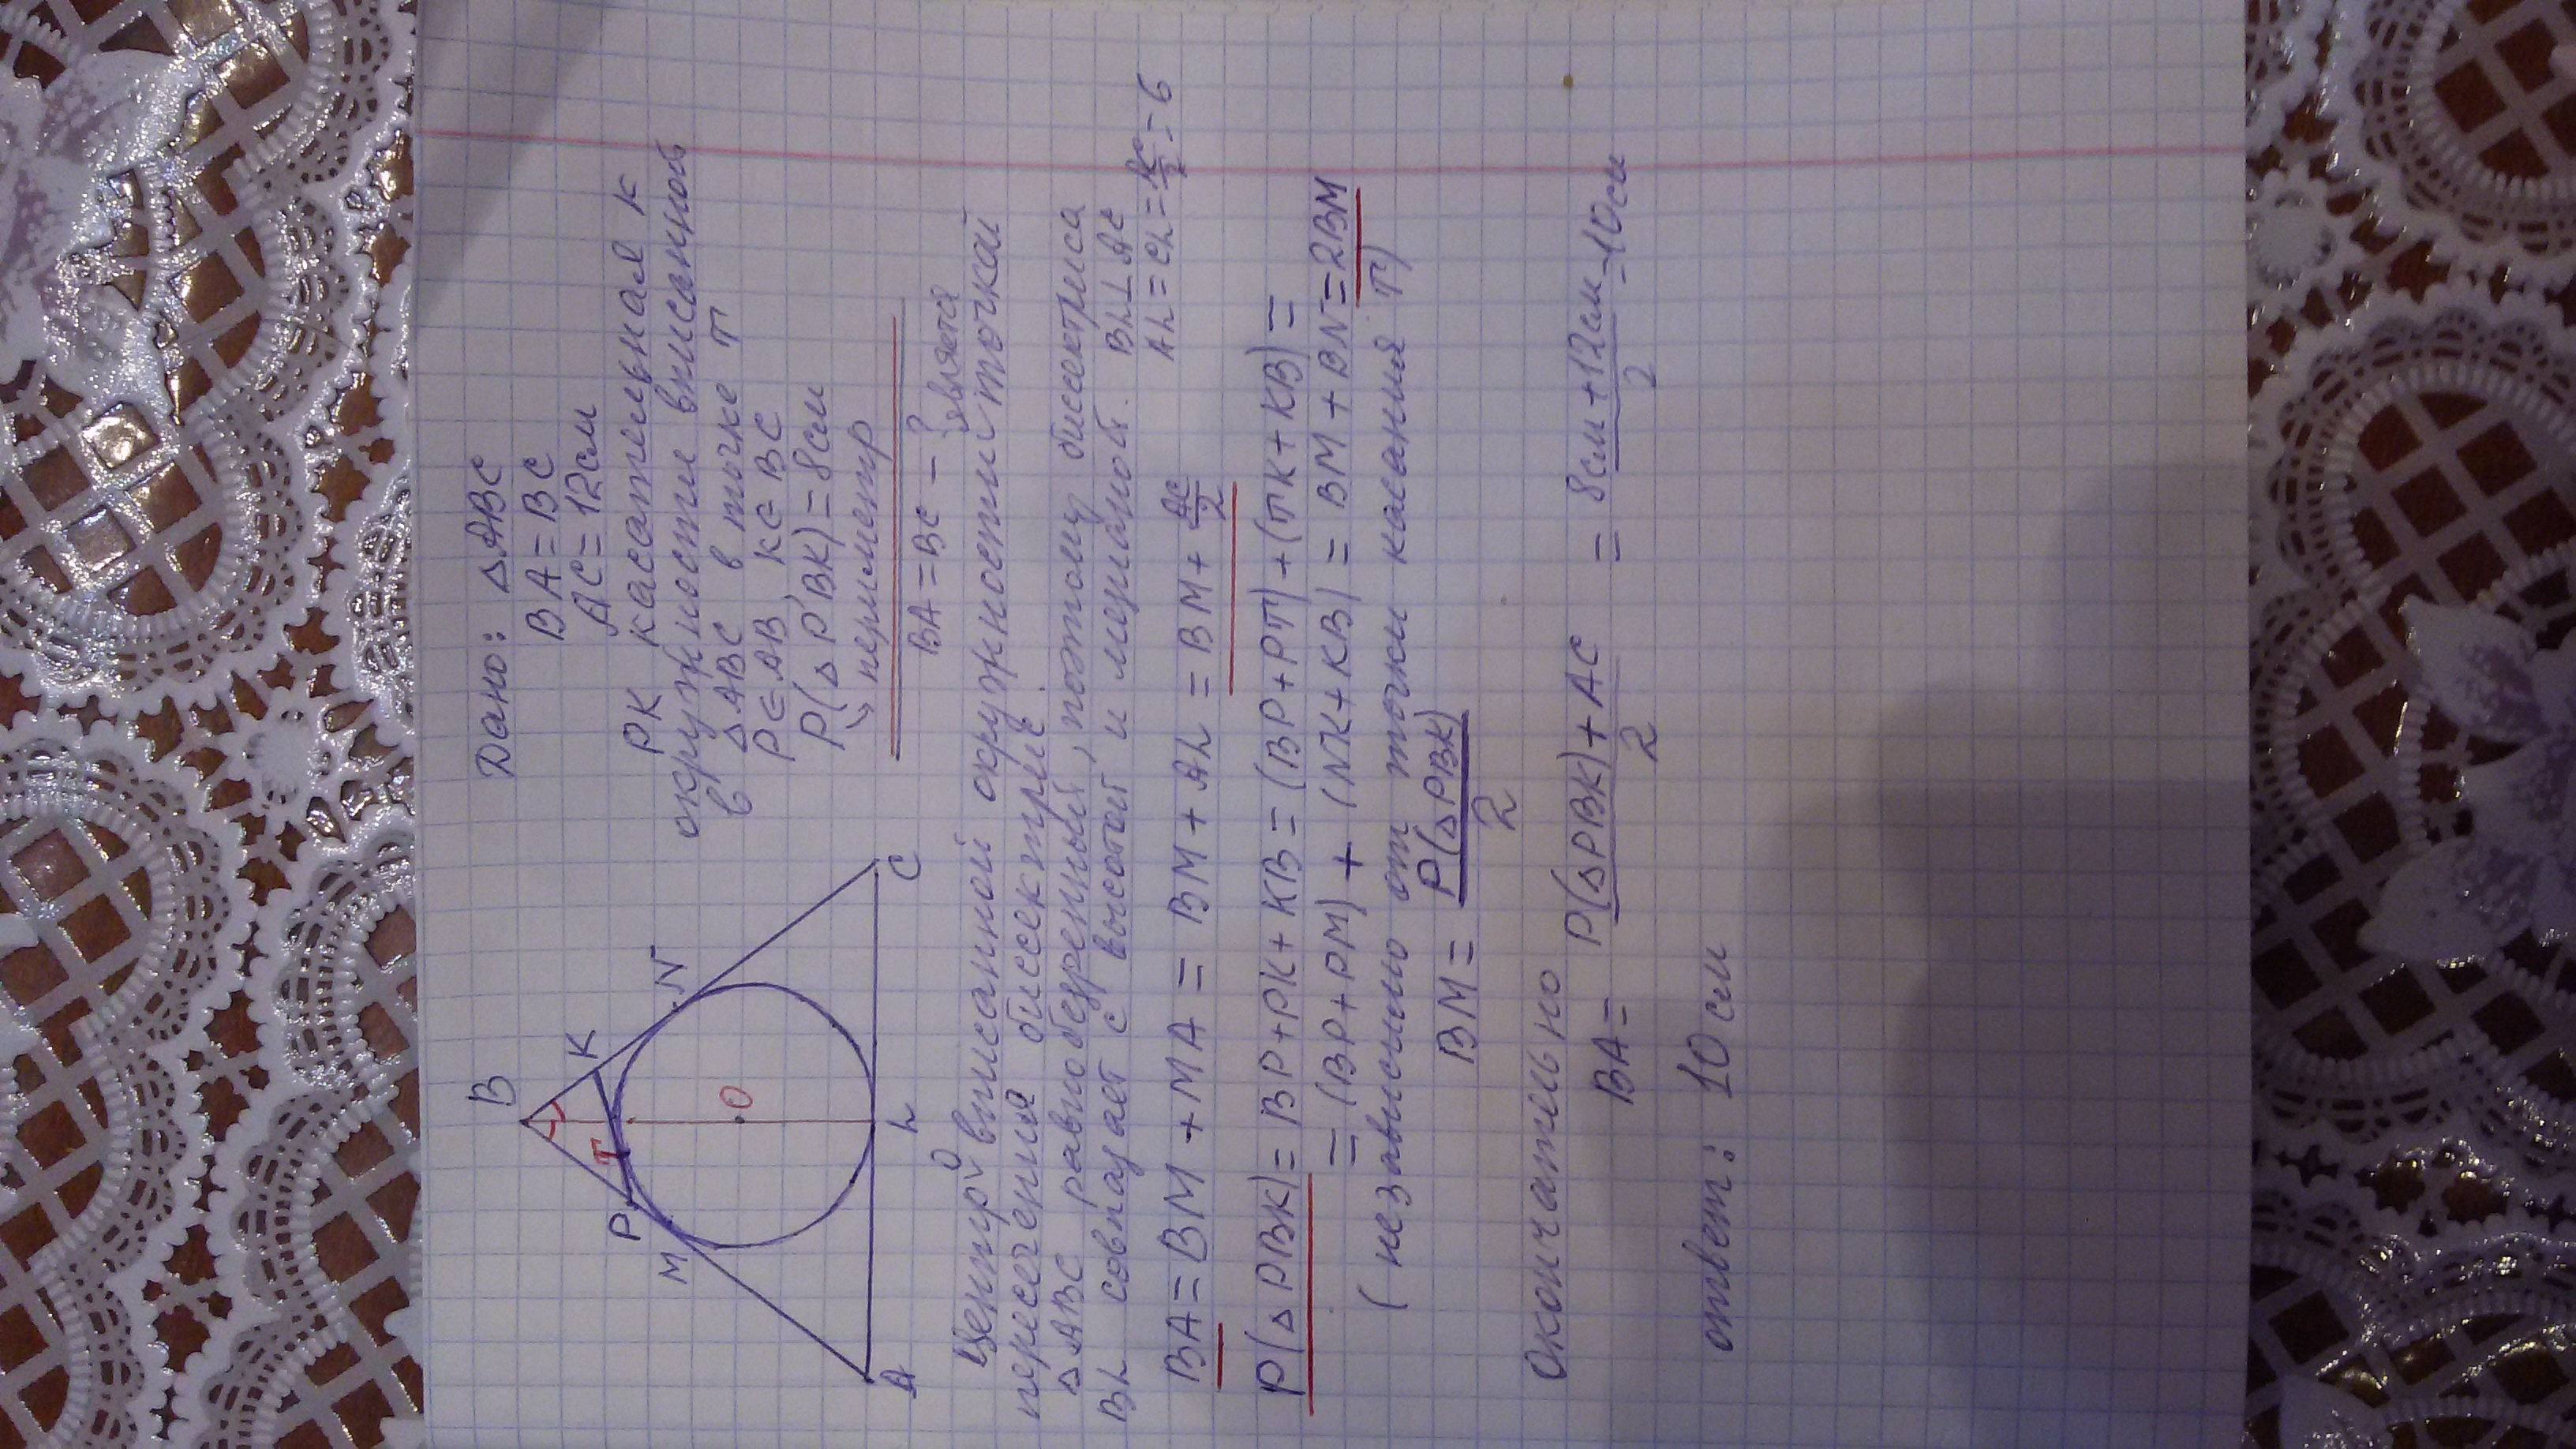 Дано: △ABC
BA = BC
AC = 12см
PK касательная к
окружности вписанной
в △ABC в точке T
P∈AB, K∈BC
P(△PBK) = 8см
периметр
BA = BC - ?
B
P
T
K
M
N
O
A
L
C
Центр O вписанной окружности является точкой
пересечения биссектрис.
△ABC равнобедренный, поэтому биссектриса
BL совпадает с высотой и медианой. BL⊥AC
AL = CL = AC/2 = 6
BA = BM + MA = BM + AL = BM + AC/2
P(△PBK) = BP + PK + KB = (BP + PT) + (TK + KB) =
= (BP + PM) + (NK + KB) = BM + BN = 2BM
(независимо от точки касания T)
BM = P(△PBK)/2
Окончательно
BA = P(△PBK) + AC / 2 = 8см + 12см / 2 = 10см
ответ: 10см